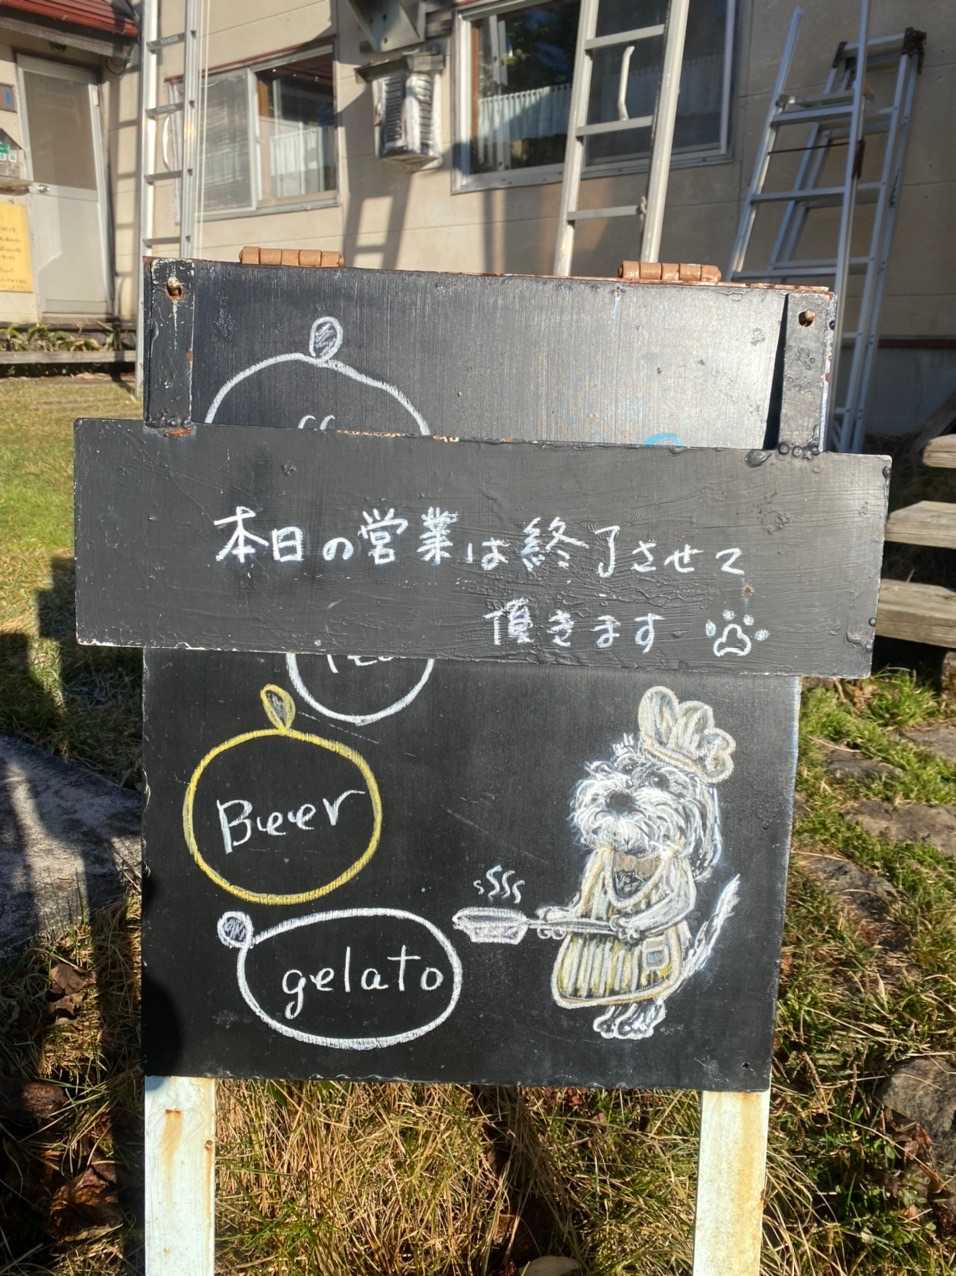 本日の営業は終了させて
頂きます
Beer
gelato
B